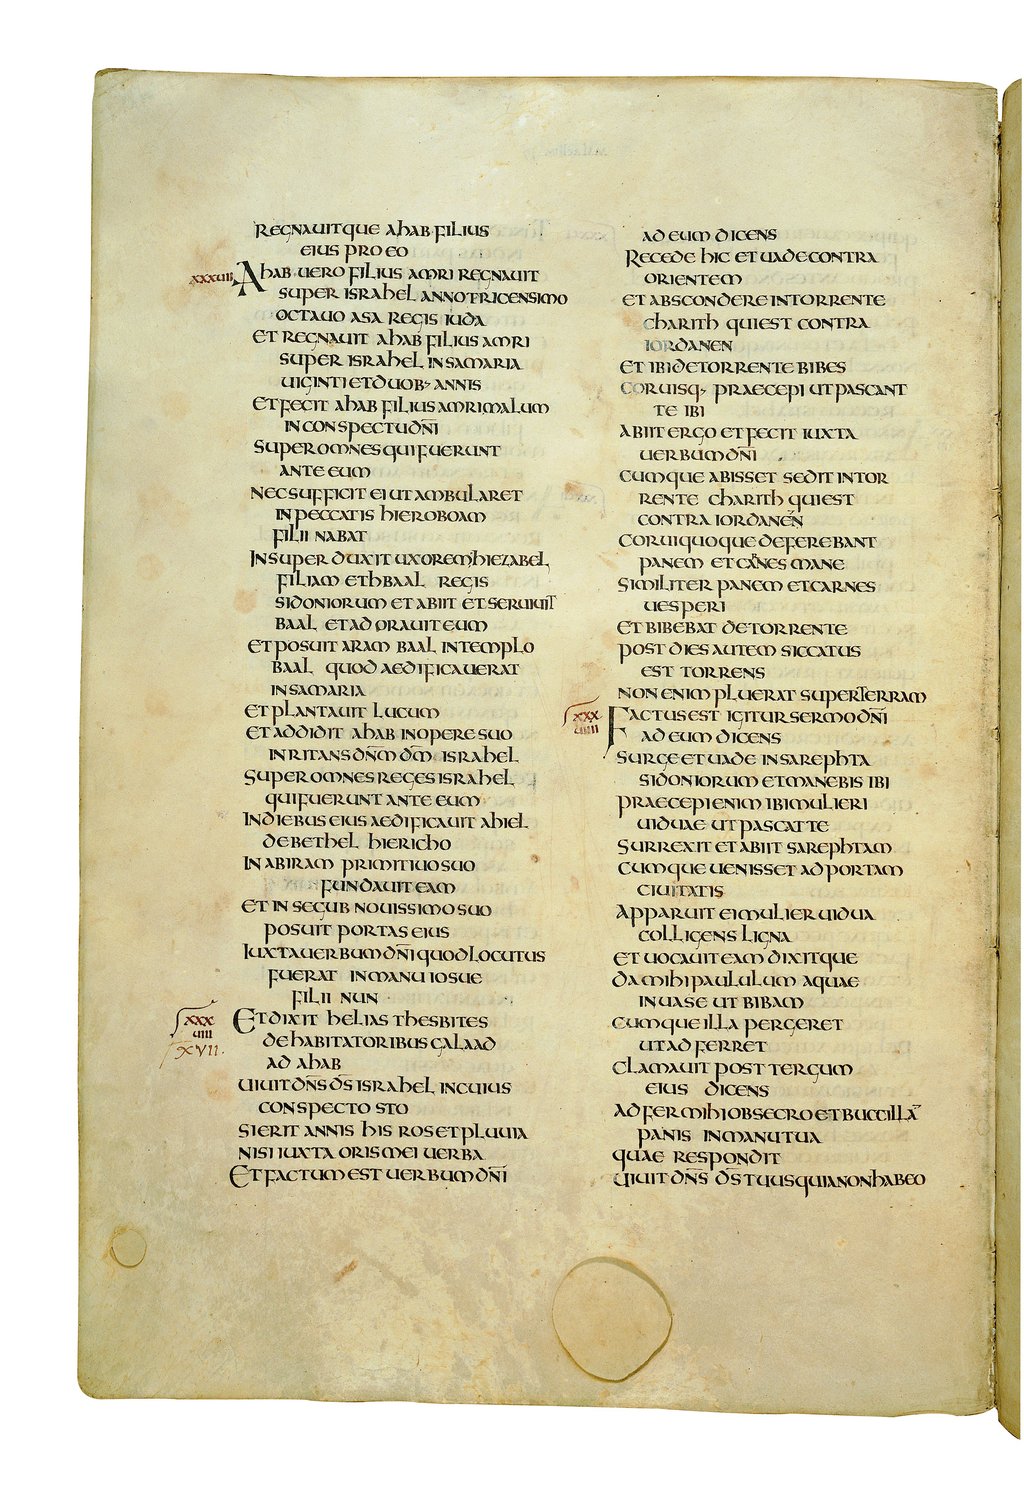 REGNAUITQUE AHAB FILIUS
EIUS PRO EO
XXXVIII AHAB UERO FILIUS AMRI REGNAUIT
SUPER ISRAHEL ANNO TRICENSIMO
OCTAUO ASA REGIS IUDA
ET REGNAUIT AHAB FILIUS AMRI
SUPER ISRAHEL IN SAMARIA
UIGINTI ET DUOB; ANNIS
ET FECIT AHAB FILIUS AMRI MALUM
IN CONSPECTU DN̄I
SUPER OMNES QUI FUERUNT
ANTE EUM
NEC SUFFICIT EI UT AMBULARET
IN PECCATIS HIEROBOAM
FILII NABAT
INSUPER DUXIT UXOREM HIEZABEL
FILIAM ETHBAAL REGIS
SIDONIORUM ET ABIIT ET SERUIUIT
BAAL ET ADORAUIT EUM
ET POSUIT ARAM BAAL IN TEMPLO
BAAL QUOD AEDIFICAUERAT
IN SAMARIA
ET PLANTAUIT LUCUM
ET ADDIDIT AHAB IN OPERE SUO
INRITANS DN̄M DM̄ ISRAHEL
SUPER OMNES REGES ISRAHEL
QUI FUERUNT ANTE EUM
IN DIEBUS EIUS AEDIFICAUIT AHIEL
DE BETHEL HIERICHO
IN ABIRAM PRIMITIUO SUO
FUNDAUIT EAM
ET IN SEGUB NOUISSIMO SUO
POSUIT PORTAS EIUS
IUXTA UERBUM DN̄I QUOD LOCUTUS
FUERAT IN MANU IOSUE
FILII NUN
XXXUIIII XVII. ET DIXIT HELIAS THESBITES
DE HABITATORIBUS GALAAD
AD AHAB
UIUIT DN̄S DS̄ ISRAHEL IN CUIUS
CONSPECTO STO
SI ERIT ANNIS HIS ROS ET PLUUIA
NISI IUXTA ORIS MEI UERBA
ET FACTUM EST UERBUM DN̄I
AD EUM DICENS
RECEDE HIC ET UADE CONTRA
ORIENTEM
ET ABSCONDERE IN TORRENTE
CHARITH QUI EST CONTRA
IORDANEN
ET IBI DE TORRENTE BIBES
CORUISQ; PRAECEPI UT PASCANT
TE IBI
ABIIT ERGO ET FECIT IUXTA
UERBUM DN̄I
CUMQUE ABISSET SEDIT IN TOR
RENTE CHARITH QUI EST
CONTRA IORDANEN
CORUI QUOQUE DEFEREBANT
PANEM ET CARNES MANE
SIMILITER PANEM ET CARNES
UESPERI
ET BIBEBAT DE TORRENTE
POST DIES AUTEM SICCATUS
EST TORRENS
NON ENIM PLUERAT SUPER TERRAM
XXXUIIII FACTUS EST IGITUR SERMO DN̄I
AD EUM DICENS
SURGE ET UADE IN SAREPHTA
SIDONIORUM ET MANEBIS IBI
PRAECEPI ENIM IBI MULIERI
UIDUAE UT PASCAT TE
SURREXIT ET ABIIT SAREPHTAM
CUMQUE UENISSET AD PORTAM
CIUITATIS
APPARUIT EI MULIER UIDUA
COLLIGENS LIGNA
ET UOCAUIT EAM DIXITQUE
DA MIHI PAULULUM AQUAE
IN UASE UT BIBAM
CUMQUE ILLA PERGERET
UT ADFERRET
CLAMAUIT POST TERGUM
EIUS DICENS
ADFER MIHI OBSECRO ET BUCCILLĀ
PANIS IN MANU TUA
QUAE RESPONDIT
UIUIT DN̄S DS̄ TUUS QUIA NON HABEO